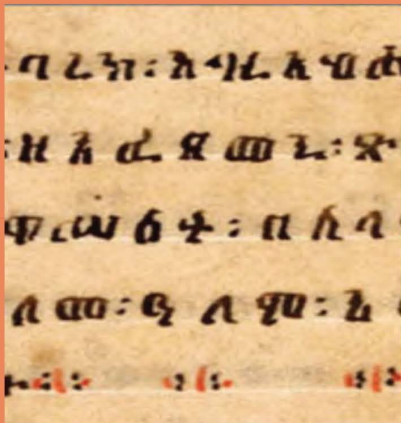 ባረክ፡ እግዚአብሔ
፡ዘአፈጸመኒ፡ጽ
ዋሥዕት፡ በሰላ
ለመ፡ዓለም፡አ